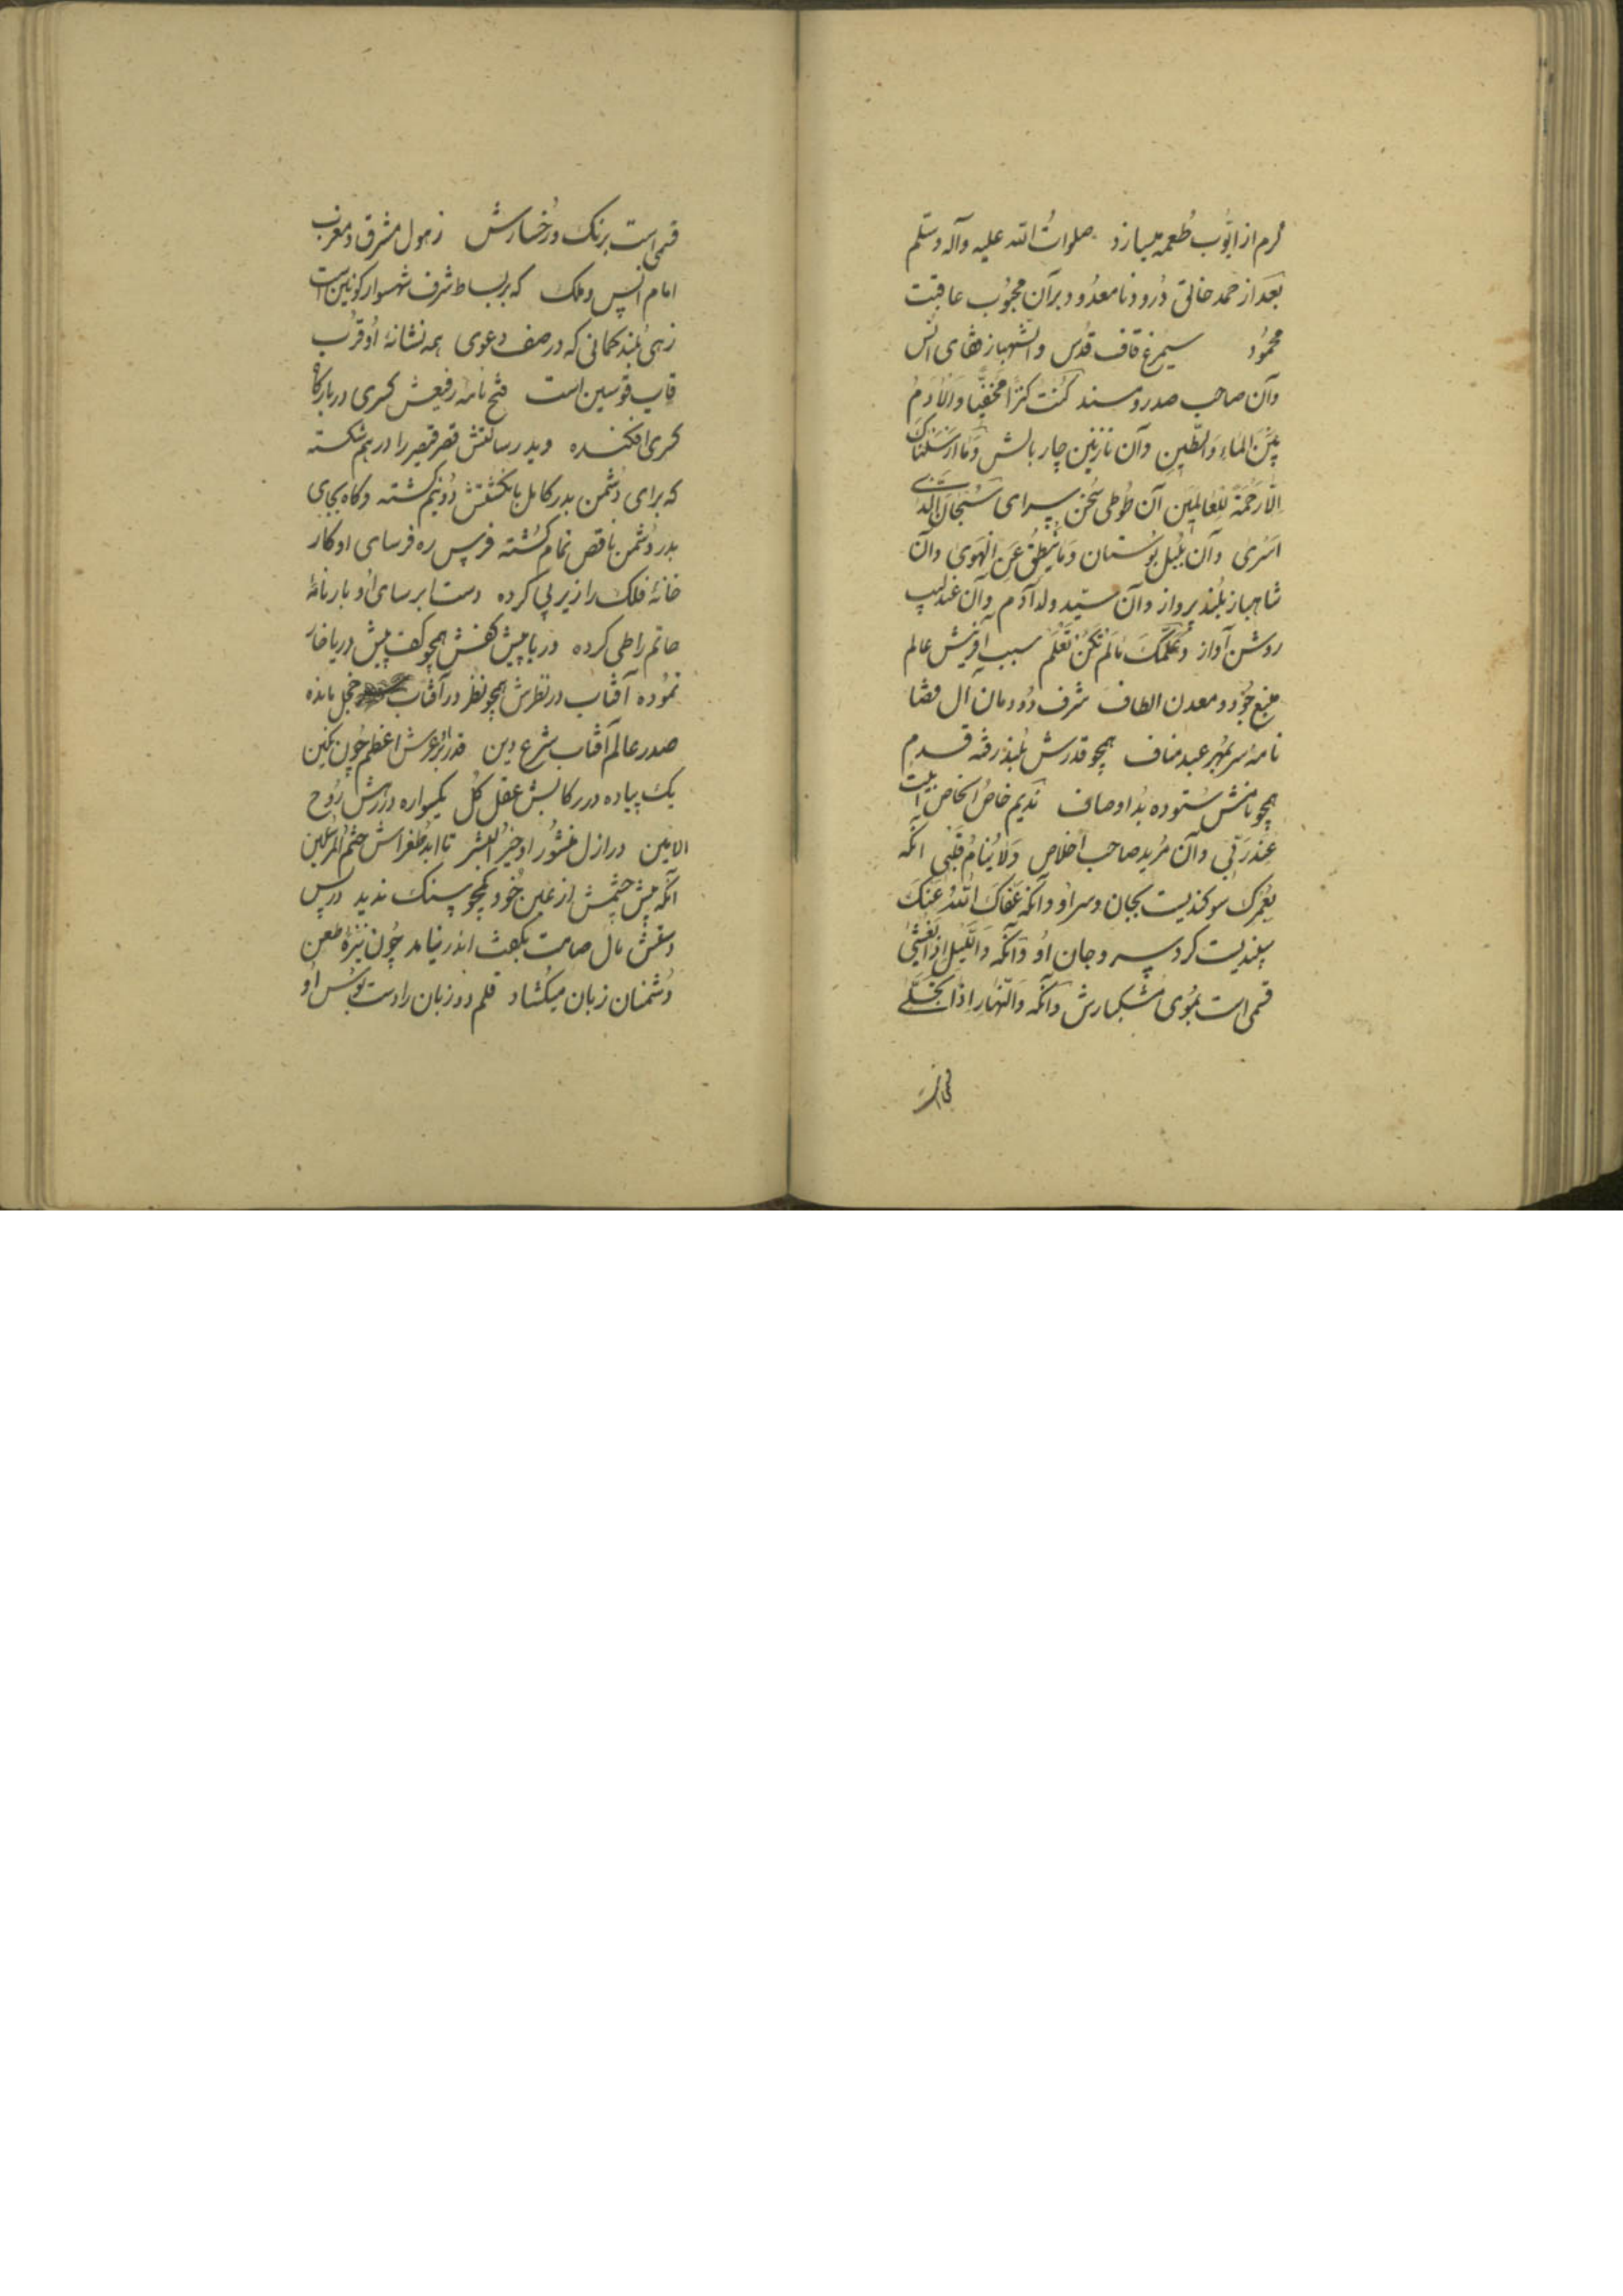 کرم از ایّوب طُعمه میسازد صلواتُ الله علیه وآله وسلم
بَعد از حمد خالق دُرود نامعدُود بر آن محبُوب عاقبت
محمُود سیمرغ قاف قدُس و شهباز فضای اُنس
وآن صاحب صدر ومسند کُنْتُ کنزًا مَخفیًّا وَالآدَمُ
بَیْنَ المَاءِ وَالطِّینِ وآن نازنین چار بالش وَمَا ارْسَلْنَاکَ
اِلّا رَحْمَةً لِلعَالَمِینَ آن طُوطی سُخن سرای سُبْحَانَ الَّذی
اَسْرَی وآن بُلبُل بُوستان وَمَا یَنْطِقُ عَنِ الْهَوَی وآن
شاهباز بلند پرواز وآن سیّد ولد آدم وآن عندلیب
روشن آواز وَعَلَّمَکَ مَالَمْ تَکُنْ تَعْلَمُ سبب آفرینش عالم
منبع جُود ومعدن الطاف شرف دُودمان آل قضا
نامهٔ سر بمُهر عبد مناف همچو قدرش بُلند رفته قدم
همچو نامش سُتوده بُد اوصاف ندیم خاصُ الخاص اَبِیتُ
عِنْدَ رَبّی وآن مُرید صاحب اخلاص وَلَا یَنَامُ قَلْبِی آنکه
بعَمْرِکَ سوکندیست بجان وسر او وآنکه عَفَاکَ اللهُ عَنْکَ
پندیست کرد سر وجان اُو وآنکه وَاللَّیْلِ اِذَا یَغْشَی
قسمی است بمُوی مُشکبارش وآنکه وَالنَّهَارِ اِذَا تَجَلَّی
قسمی است برنک ورُخسارش ز هول مشرق ومغرب
امام انس وملک که بر بساط شرف شهسوار کونین است
زهی بُلند کمانی که در صف دعوی همه نشانهٔ اُو قرُب
قابِ قوسین است فتح نامهٔ رفیعش کسری در بارکاه
کسری افکنده وید رسالتش قصر قیصر را درهم شکسته
که برای دُشمن بدر کامل بانکشتش دُونیم کشته وکاه بجای
بدر دُشمن ناقص تمام کشته فرس ره فرسای او کار
خانهٔ فلک را زیر پی کرده دست ابر سای اُو بار نامهٔ
حاتم را طی کرده دریا پیش کفش همچو کف پیش دریا خار
نمُوده آفتاب در نظرش همچو نظر در آفتاب خجل مانده
صدر عالم آفتاب شرع دین قدر او بر عرش اعظم چُون نکین
یک پیاده در رکابش عقل کُل یکسواره در رهش رُوح
الامین در ازل منشُور او خیرُ البَشر تا ابد طُغراش ختمُ المُرسلین
آنکه پیش چشمش از عین خُود همچو سنک ندید در پس
دستش مال صامت بکفت اندر نیامد چُون نیزهٔ طعن
دُشمنان زبان میکُشاد قلم دو زبان را دست بُوس اُو